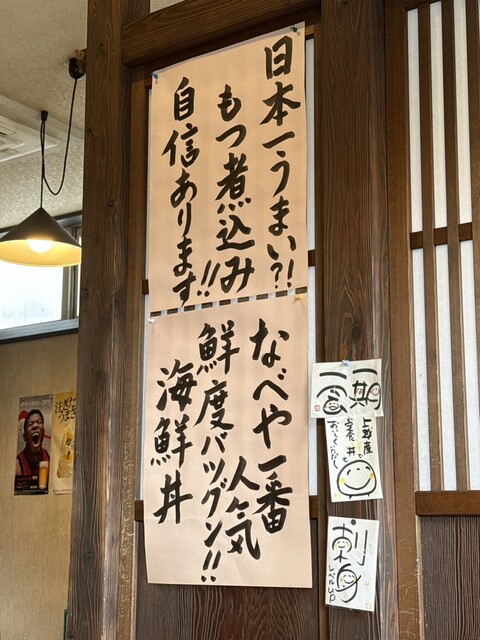 日本一うまい?!
もつ煮込み!!
自信あります
なべや一番
人気
鮮度バツグン!!
海鮮丼
一期
一会
刺身
レベルUP